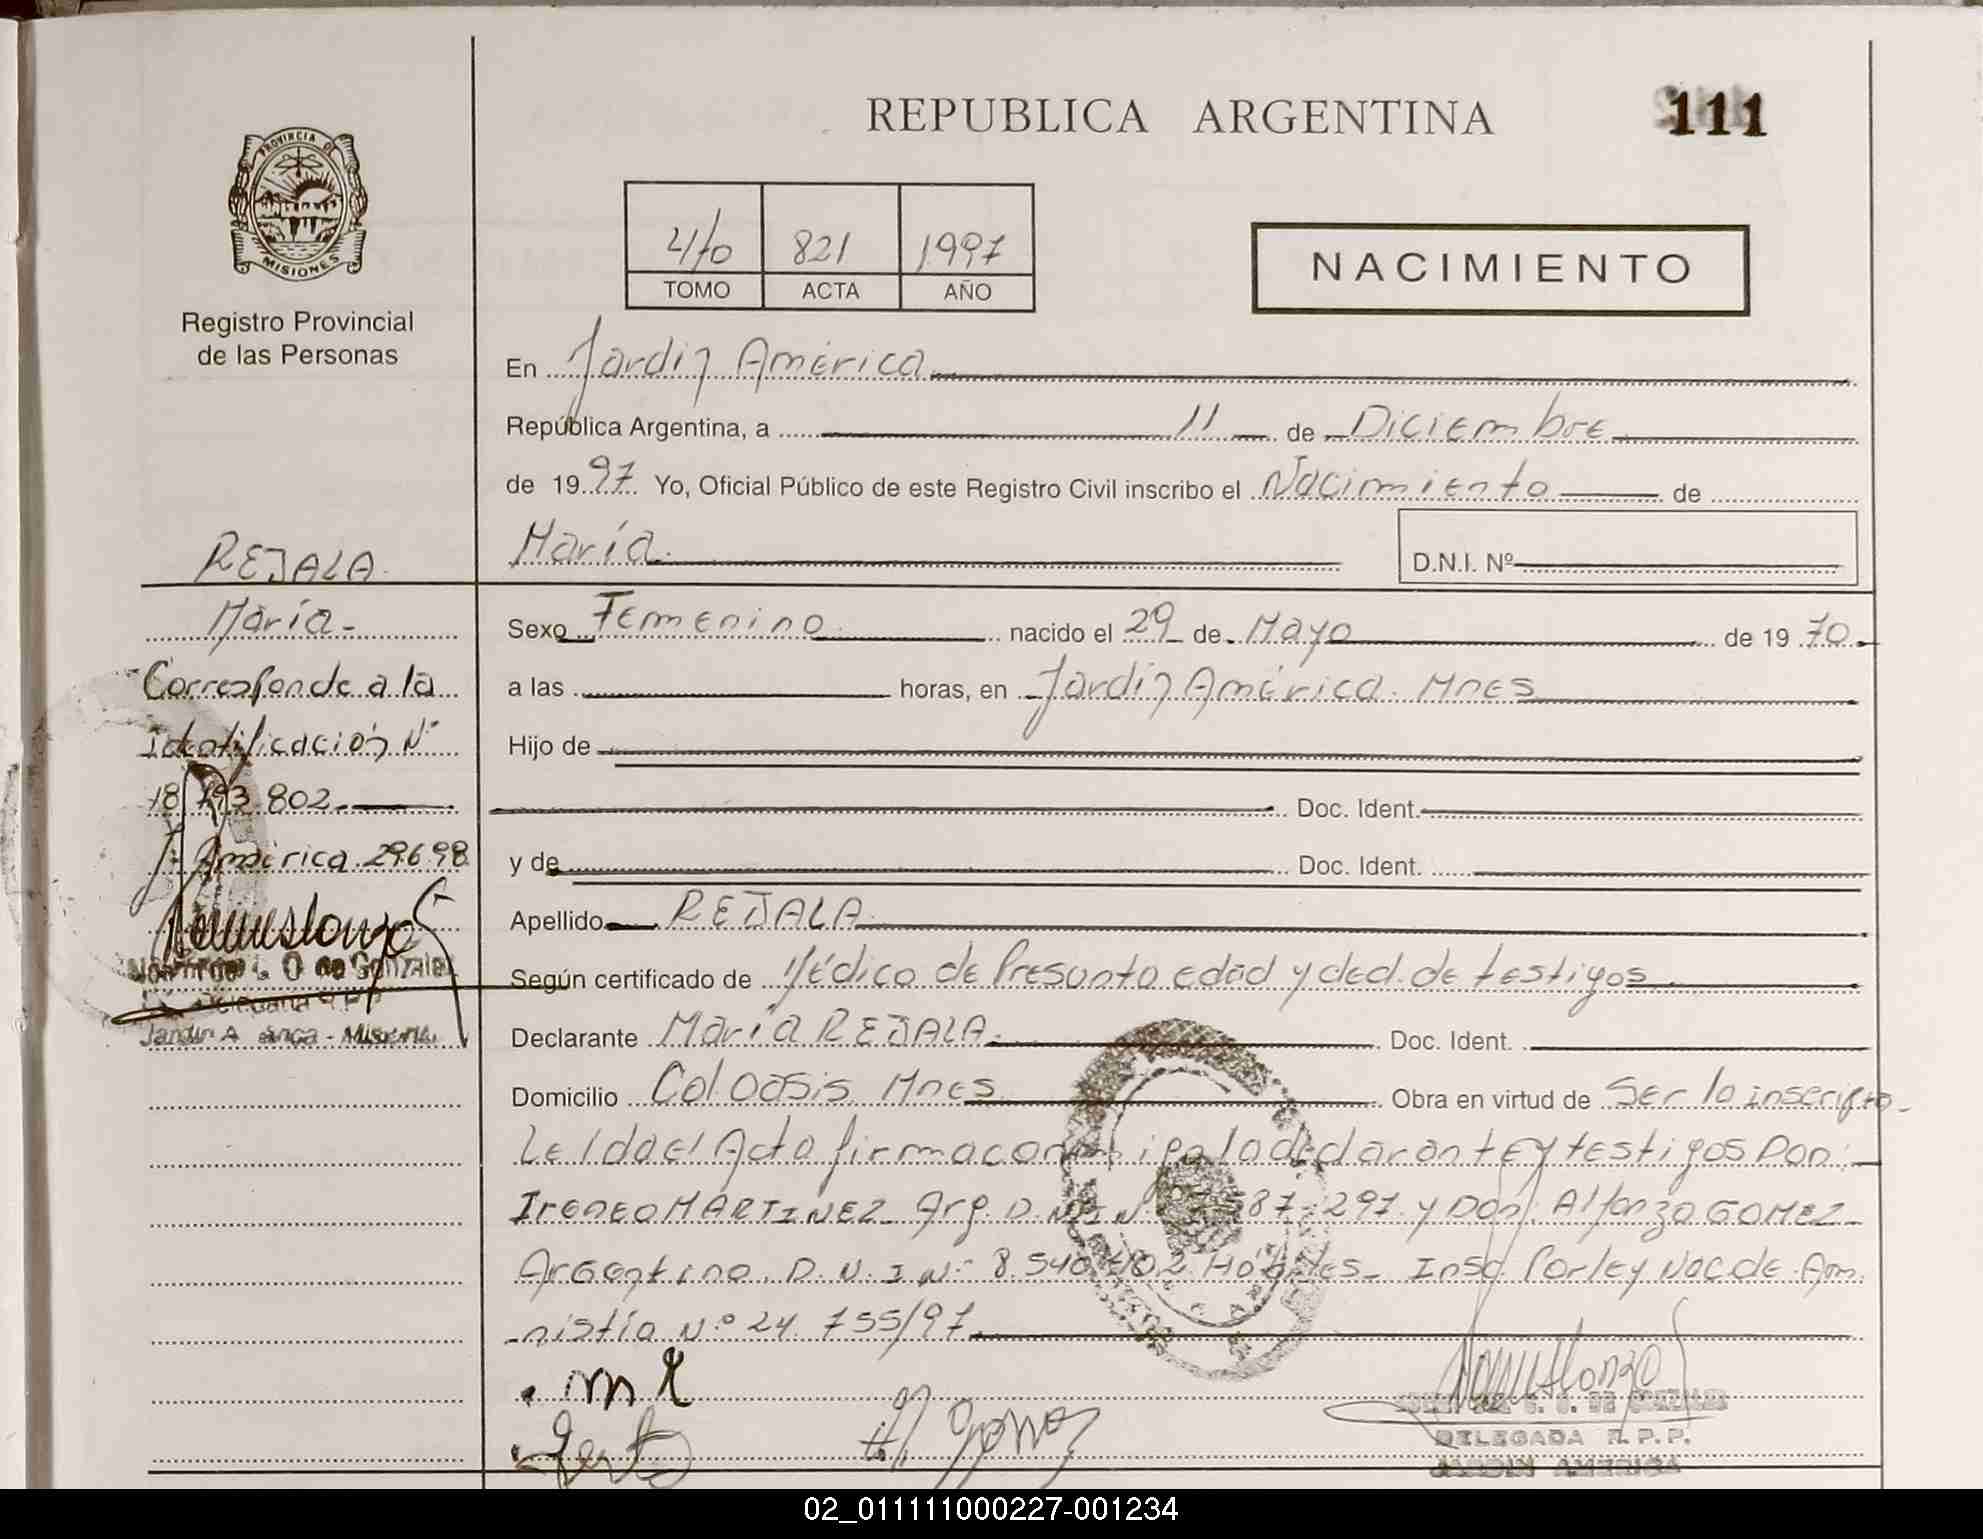 REPUBLICA ARGENTINA
111
PROVINCIA DE
MISIONES
Registro Provincial
de las Personas
4to 821 1997
TOMO ACTA AÑO
NACIMIENTO
En Jardín América
República Argentina, a 11 de Diciembre
de 1997 Yo, Oficial Público de este Registro Civil inscribo el Nacimiento de
María
D.N.I. Nº
REJALA
María
Corresponde a la
Identificación Nº
18 793 802
J. América 29.6.98
Jardín América - Misiones
Sexo Femenino nacido el 29 de Mayo de 1970
a las horas, en Jardín América. Mnes
Hijo de
Doc. Ident.
y de Doc. Ident.
Apellido REJALA
Según certificado de Médico de Presunta edad y decl. de testigos
Declarante María REJALA Doc. Ident.
Domicilio Col. Oasis Mnes Obra en virtud de Ser la inscripta
Leída el Acta firma conmigo la declarante y testigos Don
Ireneo MARTINEZ Arg. D.N.I Nº 587.297 y Don Alfonzo GOMEZ
Argentino D.N.I Nº 8.540.402 Hábiles. Insc. Por ley Nac de Am
nistía Nº 24 755/97
m r
H. Gomez
DE GONZALEZ
DELEGADA R.P.P.
JARDIN AMERICA
02_011111000227-001234